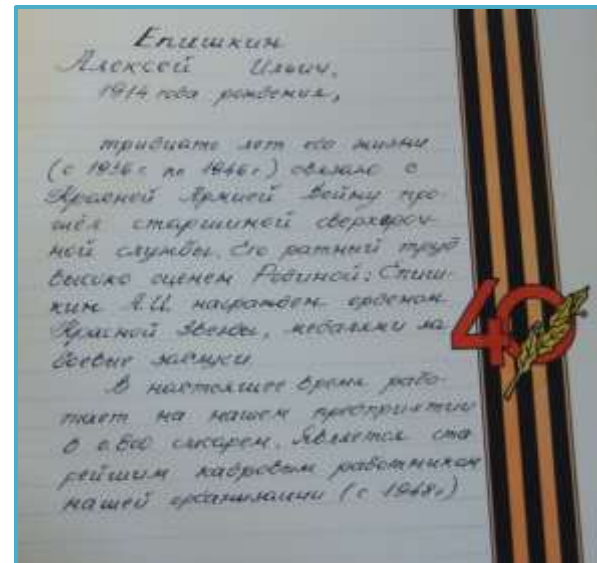 Епишкин
Алексей Ильич,
1914 года рождения,
тридцать лет его жизни
(с 1936г. по 1946г) связано с
Красной Армией. Войну про-
шёл старшиной сверхсроч-
ной службы. Его ратный труд
высоко оценен Родиной: Епиш-
кин А.И. награжден орденом
Красной Звезды, медалями за
боевые заслуги.
В настоящее время рабо-
тает на нашем предприятии
в слесарем. Является ста
рейшим кадровым работником
нашей организации (с 1948г)
40